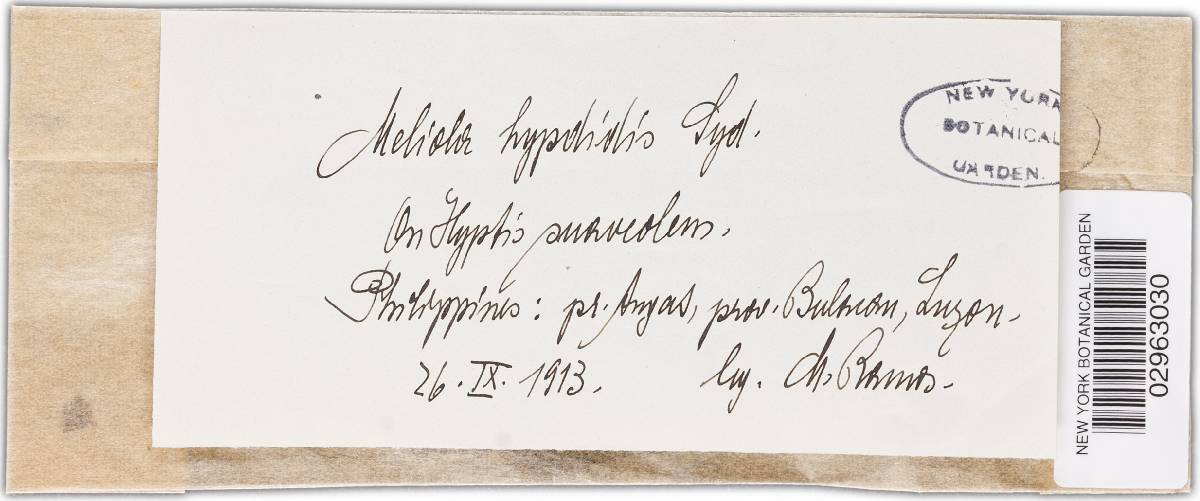 Meliola hyptidis Syd.
On Hyptis suaveolens.
Philippines: pr. Angat, prov. Bulacan, Luzon.
26. IX. 1913. leg. M. Ramos.
NEW YORK
BOTANICAL
GARDEN.
NEW YORK BOTANICAL GARDEN
02963030